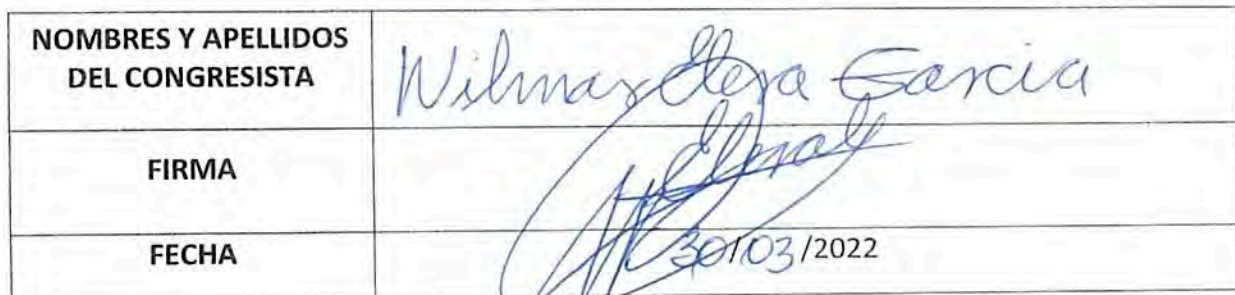 NOMBRES Y APELLIDOS
DEL CONGRESISTA
Wilmar Elera Garcia
FIRMA
Elera
FECHA
30/03/2022